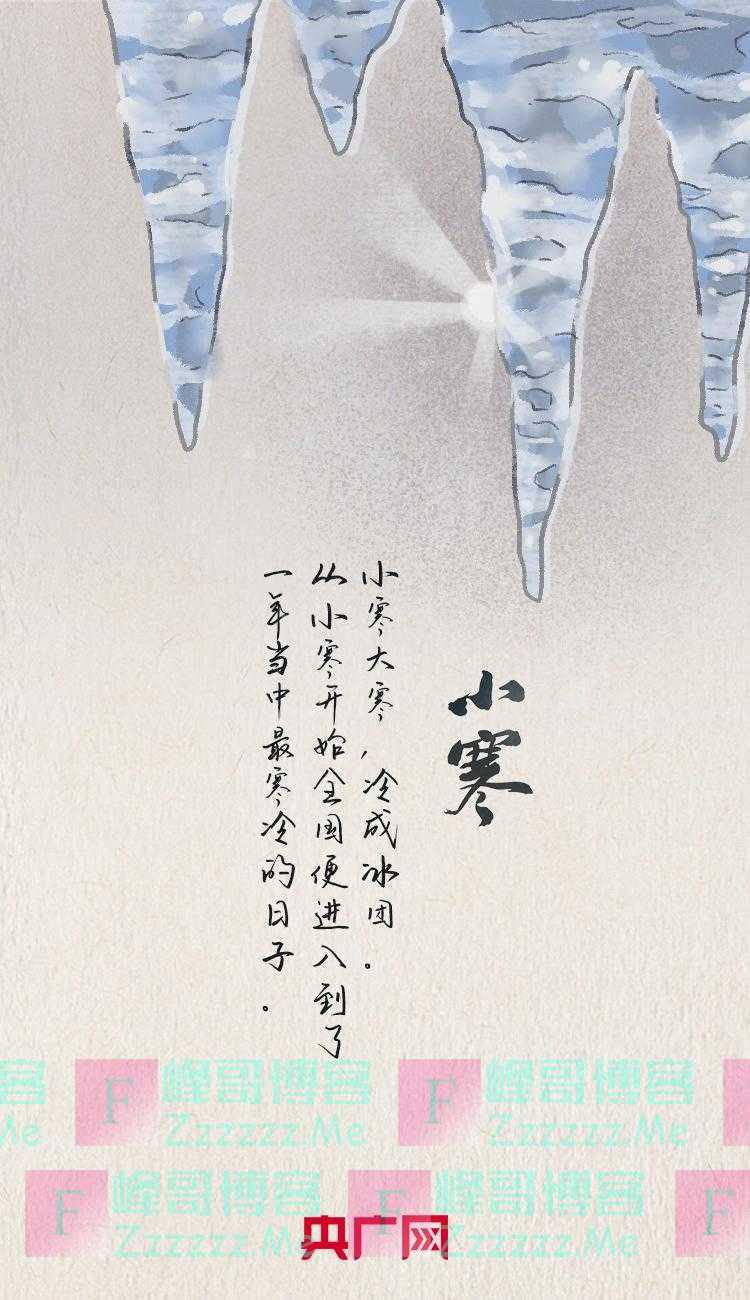 小寒
小寒大寒，冷成冰团。
从小寒开始全国便进入到了
一年当中最寒冷的日子。
客 F 峰哥博客 F 峰哥博客
Me Zzzzzz.Me Zzzzzz.Me
F 峰哥博客 F 峰哥博客 F
Zzzzzz.Me Zzzzzz.Me
央广网